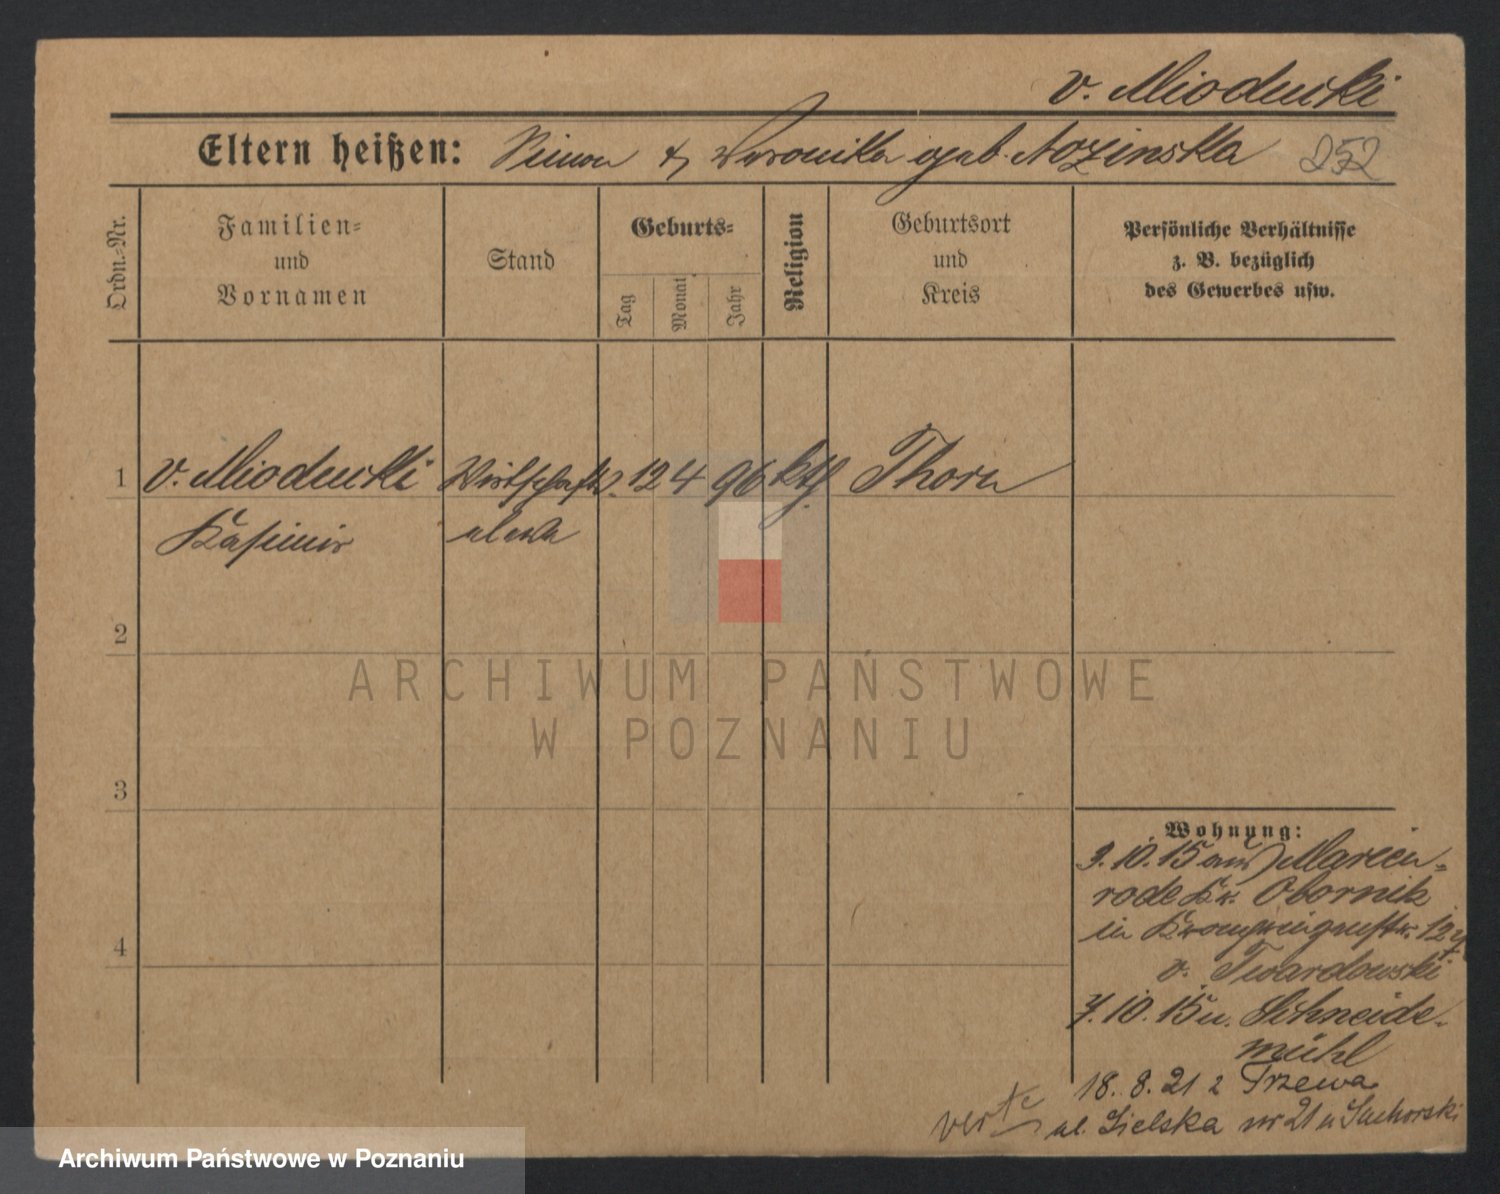 v. Mioducki
Eltern heißen: Simon & Veronika geb. Nozinska 252
Ordn.-Nr.
Familien-
und
Vornamen
Stand
Geburts-
Tag
Monat
Jahr
Religion
Geburtsort
und
Kreis
Persönliche Verhältnisse
z. B. bezüglich
des Gewerbes usw.
1 v. Mioducki Wirtschafts. 12 4 96 kth. Thorn
Kasimir eleve
2
3
4
Wohnung:
3. 10. 15 aus Marien-
rode Kr. Obornik
in Kronprinzenstr. 12
v. Twardowski
7. 10. 15 n. Schneide-
mühl
18. 8. 21 z Trzewa
ul. Sielska nr 21 u Suchorski
verte
ARCHIWUM PAŃSTWOWE
W POZNANIU
Archiwum Państwowe w Poznaniu